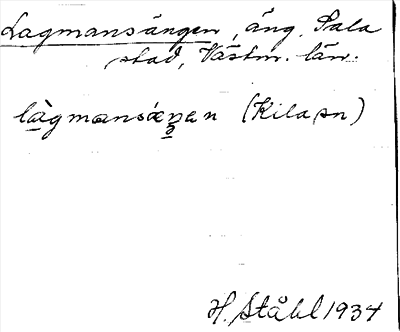 Lagmansängen, äng. Sala
stad, Västm. län.
là̱gmansæŋ̱en (Kila sn)
H. Ståhl 1934